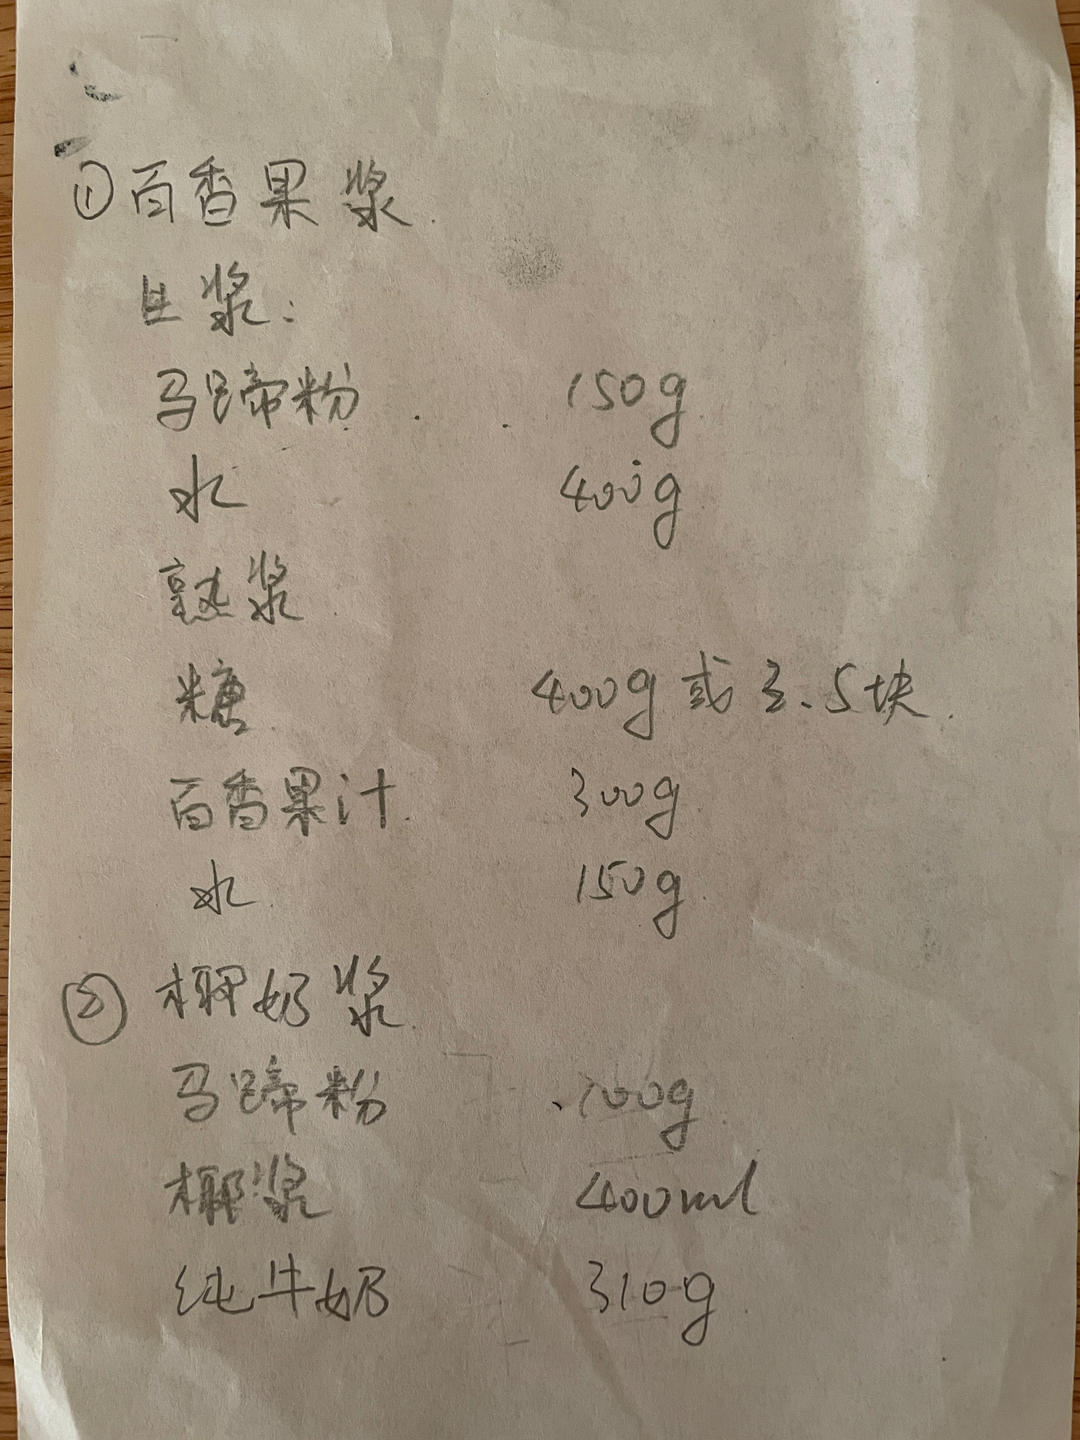 ①百香果浆
生浆:
马蹄粉 150g
水 400g
熟浆
糖 400g或3.5块
百香果汁 300g
水 150g
② 椰奶浆
马蹄粉 100g
椰浆 400ml
纯牛奶 310g